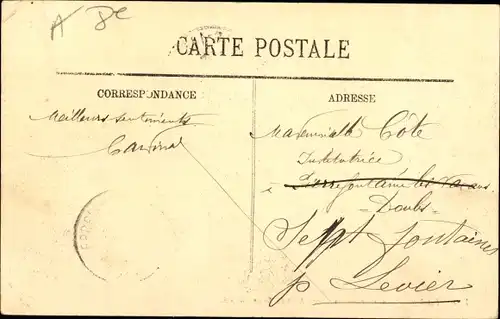 A
CARTE POSTALE
CORRESPONDANCE
ADRESSE
Meilleurs sentiments
Mademoiselle Côte
Institutrice
à Pierrefontaine les Varans
Doubs
Sept fontaines
p Levier